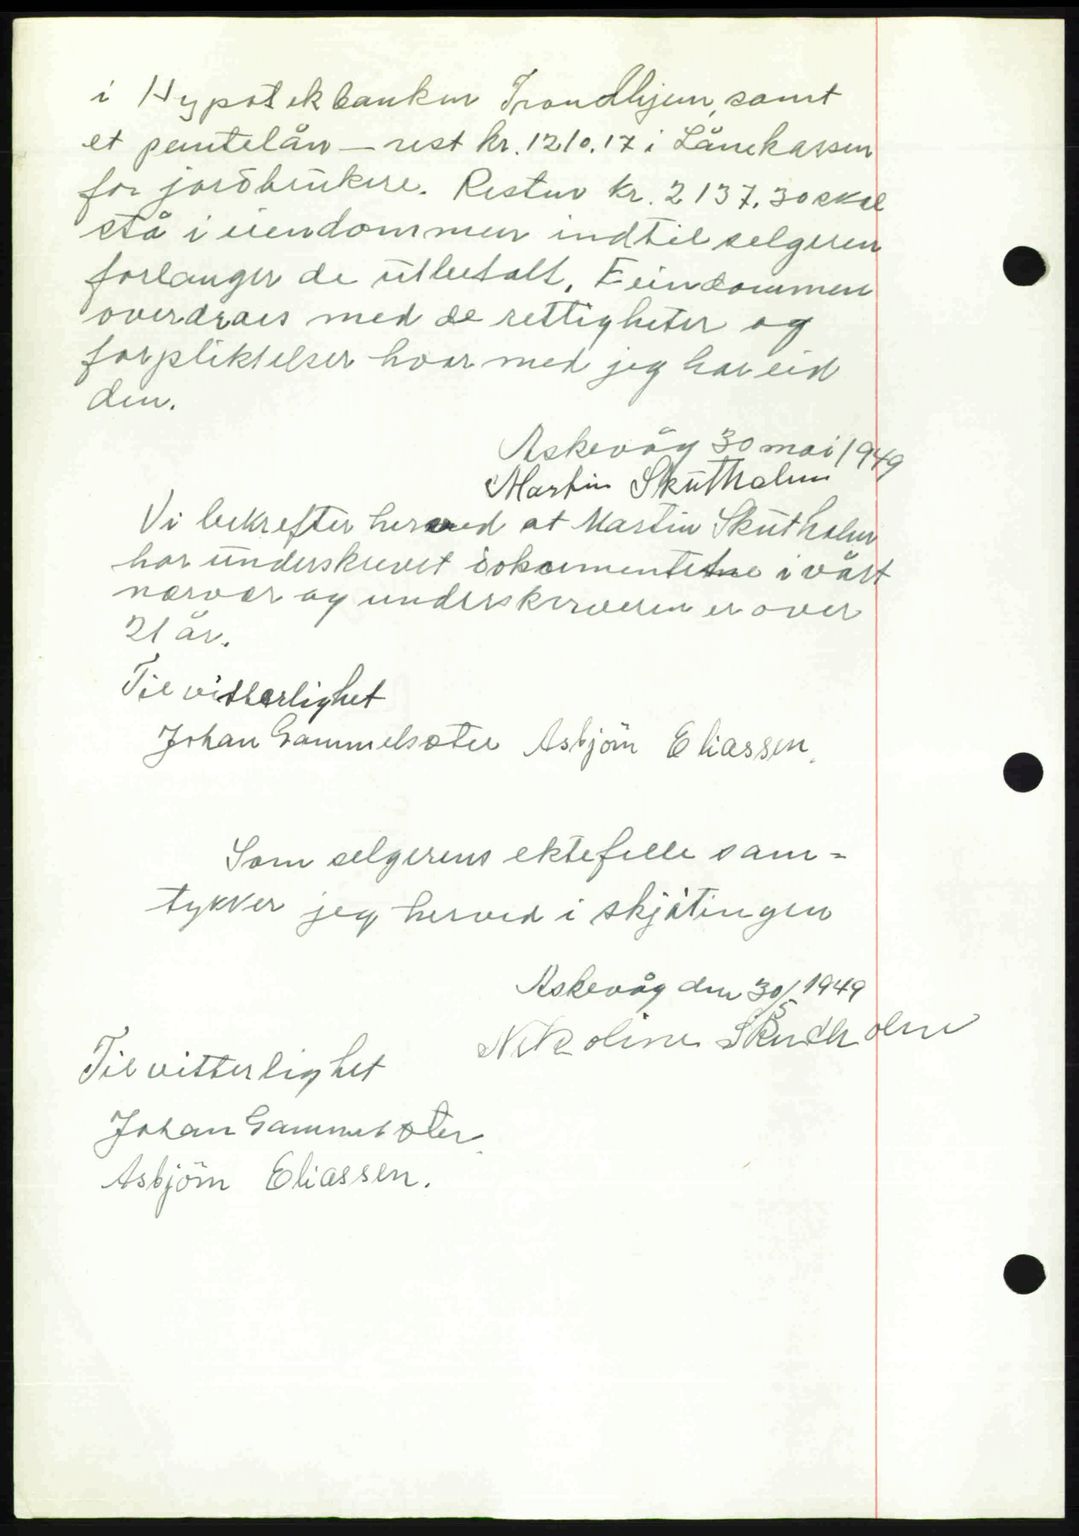 i Hypotekbanken Trondhjem, samt
et pantelån – rest kr. 1210.17 i Lånekassen
for jordbrukere. Resten kr. 2137.30 skal
stå i eiendommen indtil selgeren
forlanger de utbetalt. Eeindommen
overdraes med de rettigheter og
forpliktelser hvor med jeg har eid
den.
Askevåg 30 mai 1949
Martin Skutholm
Vi bekrefter herved at Martin Skutholm
har underskrevet dokumentetne i vårt
nærvær og underskriveren er over
21 år.
Til vitterlighet
Johan Gammelsæter Asbjörn Eliassen.
Som selgerens ektefelle sam=
tykker jeg herved i skjøtingen
Askevåg den 30/5 1949
Nikoline Skudholm
Til vitterlighet
Johan Gammelsæter
Asbjörn Eliassen.